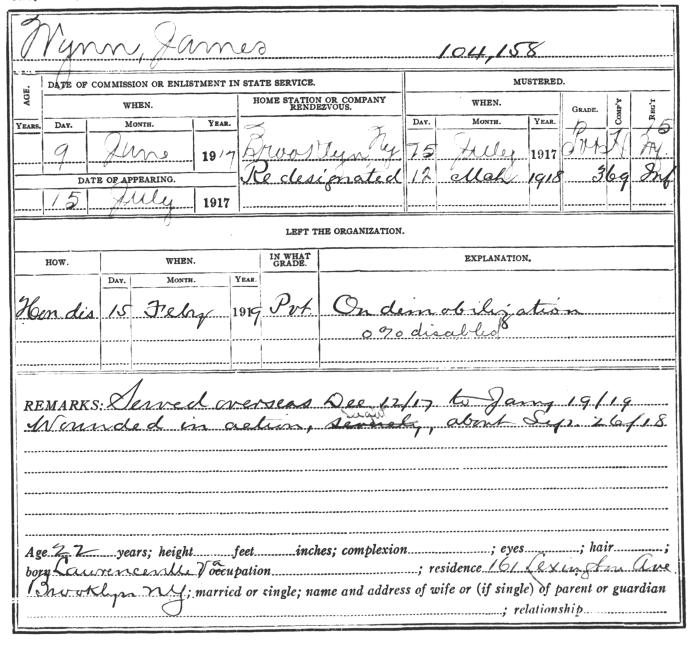 Wynn, James 104,158
AGE. DATE OF COMMISSION OR ENLISTMENT IN STATE SERVICE. MUSTERED.
WHEN. HOME STATION OR COMPANY RENDEZVOUS. WHEN. GRADE. COMP'Y REG'T
YEARS. DAY. MONTH. YEAR. DAY. MONTH. YEAR.
15
9 June 1917 Brooklyn, Ny July 1917 Pvt Ny
DATE OF APPEARING. Redesignated 12 Mch 1918 369 Inf
15 July 1917
LEFT THE ORGANIZATION.
HOW. WHEN. IN WHAT GRADE. EXPLANATION.
DAY. MONTH. YEAR.
Hon dis 15 Feby 1919 Pvt On demobilization
0% disabled
REMARKS: Served overseas Dec 12/17 to Jany 19/19
Wounded in action, severely, about Sep. 26/18
Age 22 years; height feet inches; complexion ; eyes ; hair ;
born Lawrenceville Va occupation ; residence 161 Lexington Ave
Brooklyn NY; married or single; name and address of wife or (if single) of parent or guardian
; relationship